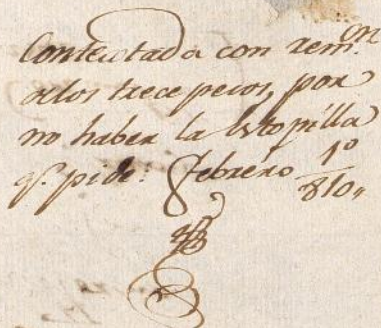 Contextada con rem.on
a los trece pesos, por
no haber la Estopilla
q.e pide: Febrero 1º
810,,